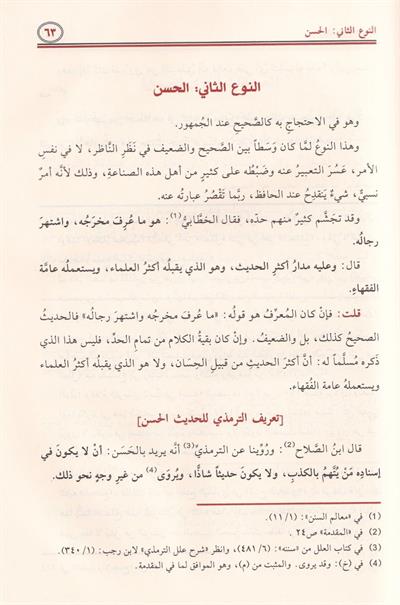 النوع الثاني: الحسن
٦٣
النوع الثاني: الحسن
وهو في الاحتجاج به كالصَّحيحِ عند الجُمهور.
وهذا النوعُ لمَّا كان وَسَطاً بين الصَّحيح والضعيف في نَظَرِ النَّاظر، لا في نفسِ
الأمر، عَسُرَ التعبيرُ عنه وضَبْطُه على كثيرٍ من أهل هذه الصناعةِ، وذلك لأنَّه أمرٌ
نسبيٌّ، شيءٌ يَنقَدِحُ عند الحافظ، ربَّما تَقْصُرُ عبارتُه عنه.
وقد تجَشَّم كثيرٌ منهم حدَّه، فقال الخطَّابيُّ(1): هو ما عُرِفَ مخرَجُه، واشتهرَ
رجالُه.
قال: وعليه مدارُ أكثرِ الحديث، وهو الذي يقبلُه أكثرُ العلماء، ويستعملُه عامَّة
الفقهاءِ.
قلت: فإنْ كان المُعرِّفُ هو قولُه: «ما عُرفَ مخرجُه واشتهرَ رجالُه» فالحديثُ
الصحيحُ كذلك، بل والضعيفُ. وإنْ كان بقيةُ الكلام من تمام الحدِّ، فليس هذا الذي
ذَكره مُسلَّماً له: أنَّ أكثرَ الحديثِ من قبيلِ الحِسَان، ولا هو الذي يقبلُه أكثرُ العلماء
ويستعملهُ عامة الفُقهاء.
[تعريف الترمذي للحديث الحسن]
قال ابنُ الصَّلاح(2): ورُوِّينا عن الترمذيِّ(3) أنَّه يريد بالحَسَن: أنْ لا يكونَ في
إسنادِه مَنْ يُتَّهمُ بالكذبِ، ولا يكونَ حديثاً شاذًّا، ويُروَى(4) من غيرِ وجهٍ نحو ذلك.
(1) في «معالم السنن»: (١١/١).
(2) في «المقدمة» ص٢٤ .
(3) في كتاب العلل من «سننه»: (٤٨١/٦)، وانظر «شرح علل الترمذي» لابن رجب: (٣٤٠/١).
(4) في (خ): وقد يروى. والمثبت من (م)، وهو الموافق لما في المقدمة.